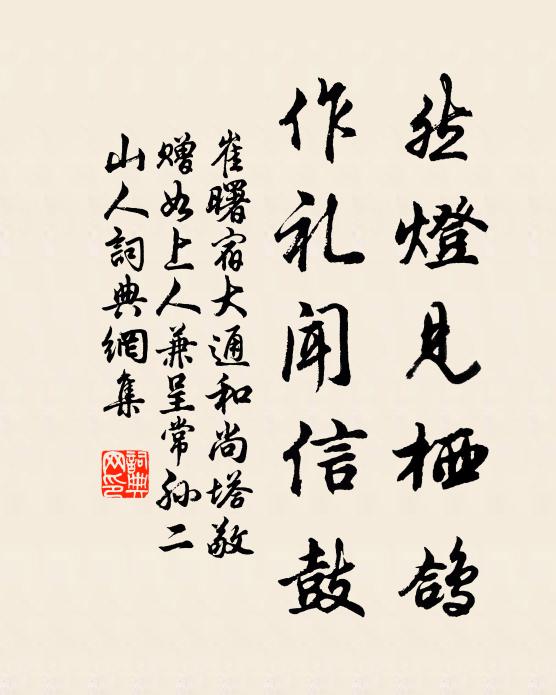 然燈見栖鴿
作礼聞信鼓
崔曙宿大通和尚塔敬
赠如上人兼呈常孙二
山人詞典網集
詞典
网印